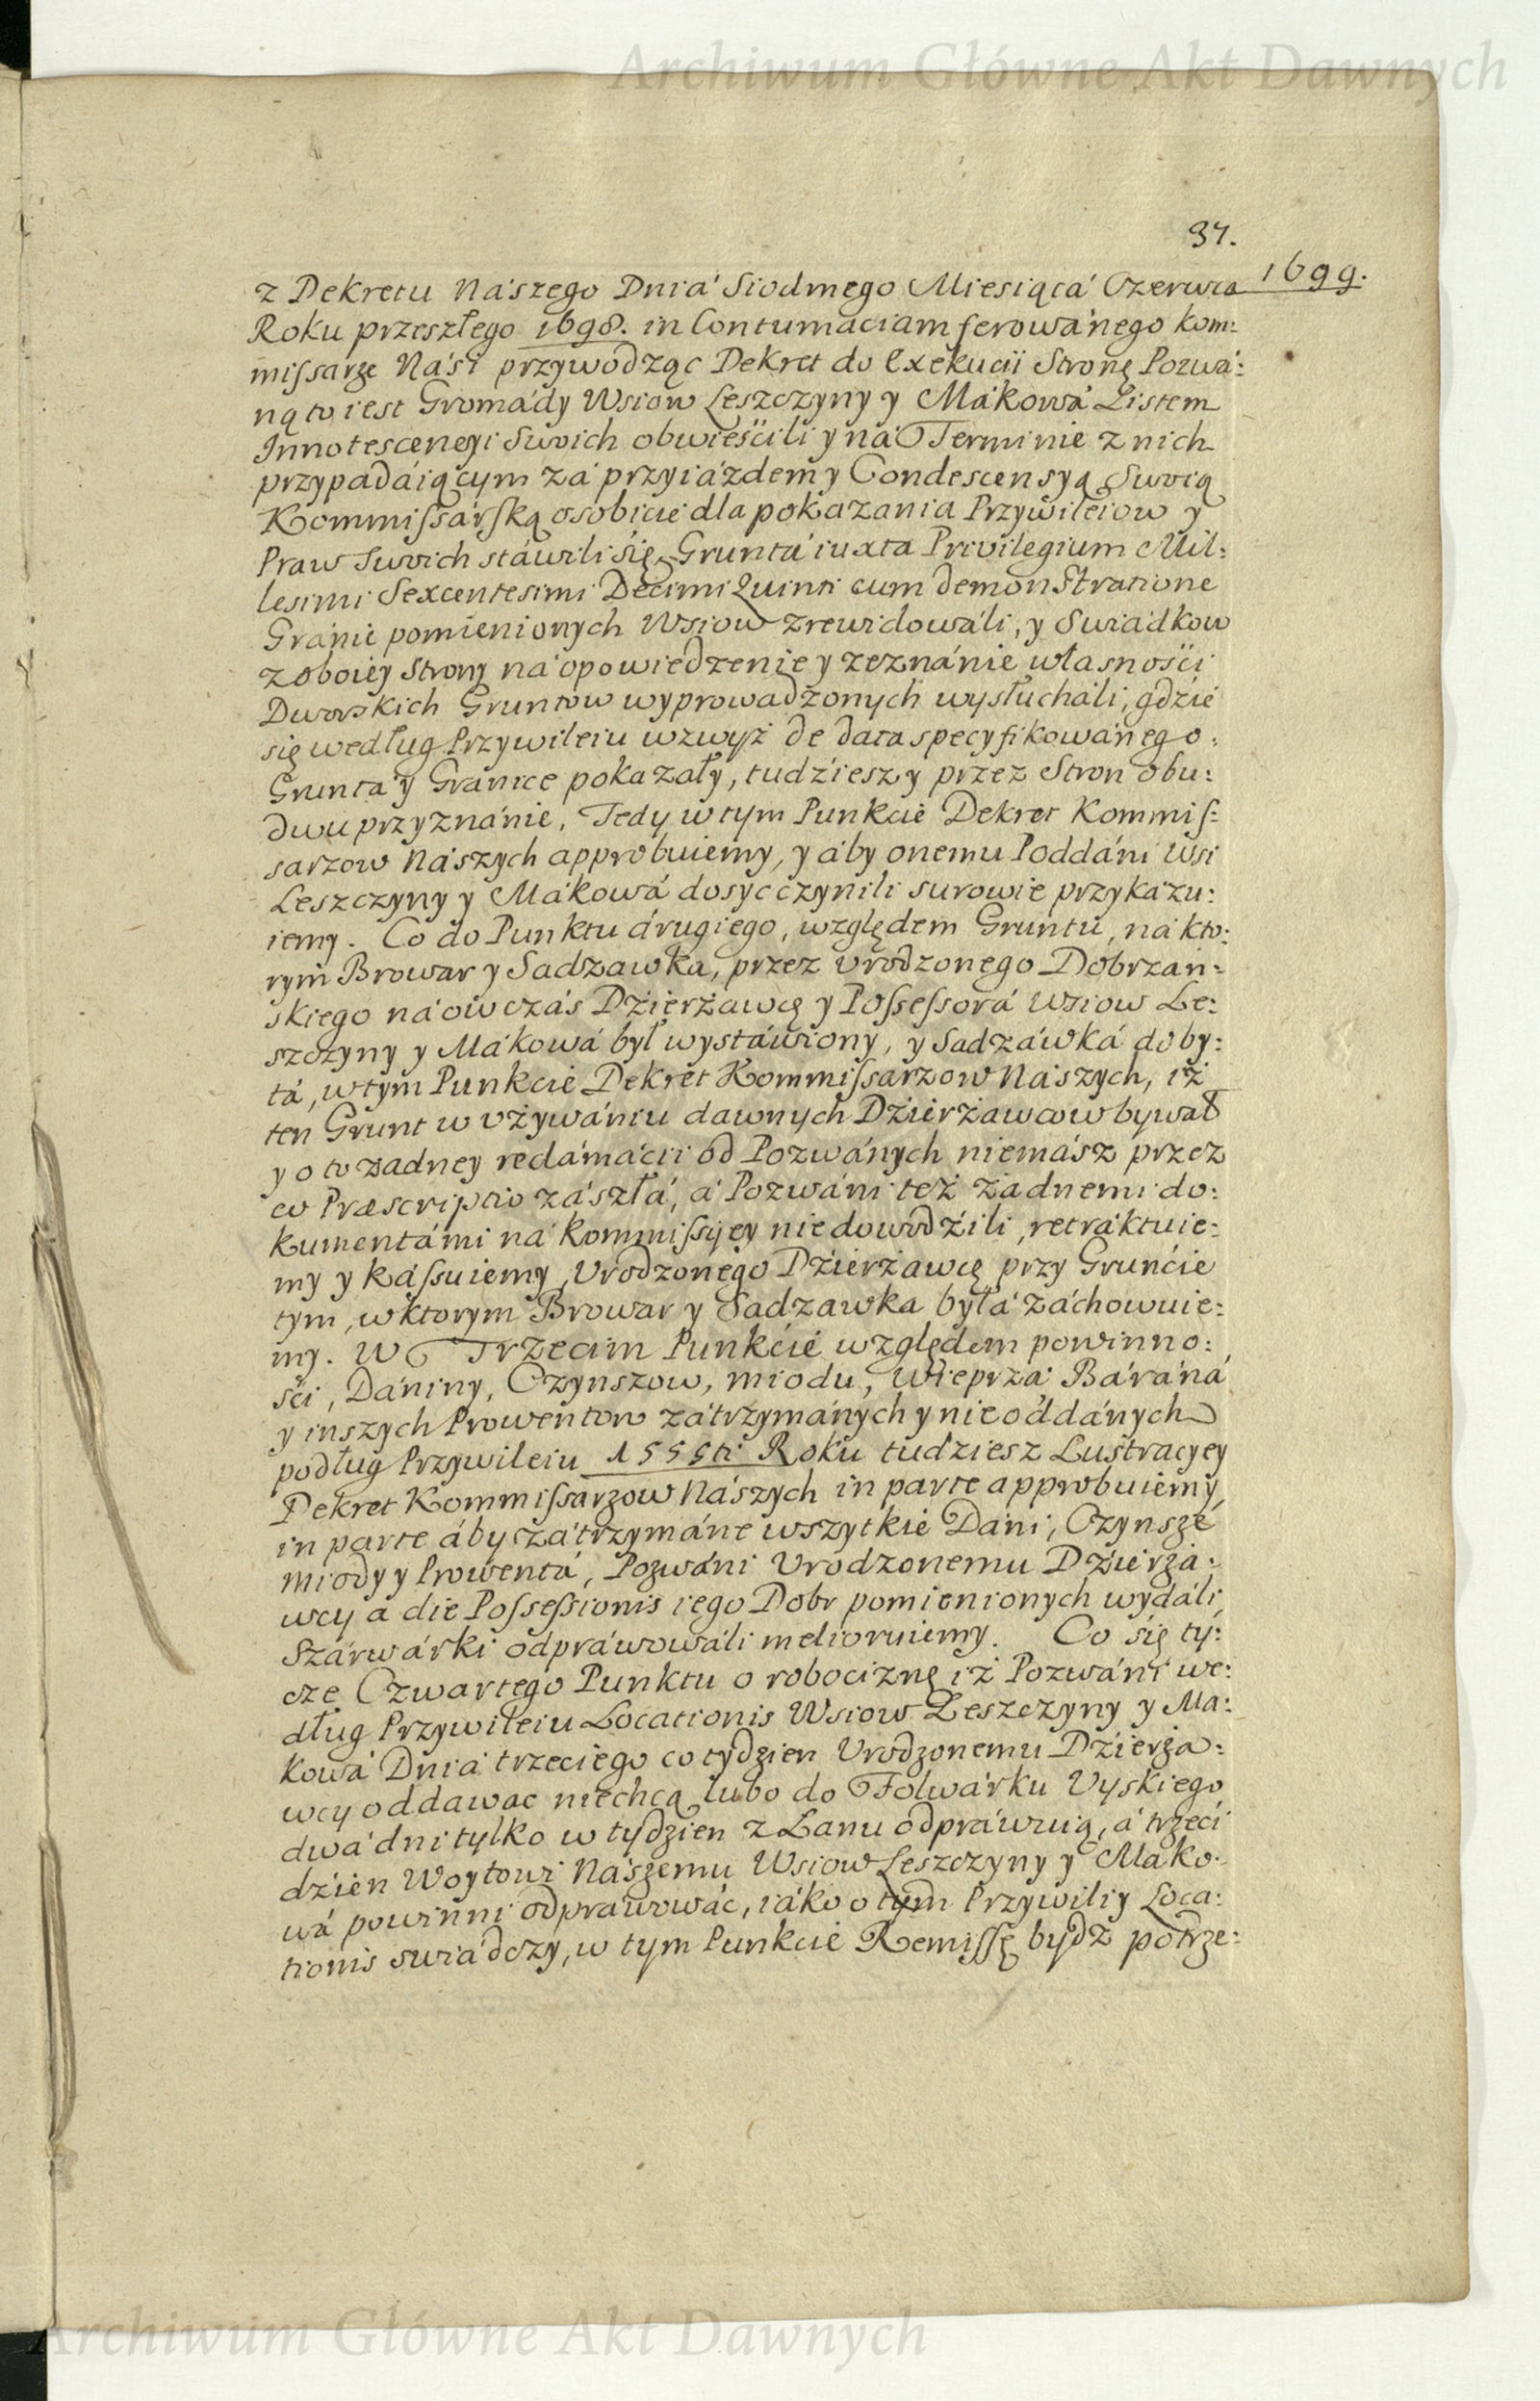 Archiwum Główne Akt Dawnych
37.
1699.
z Dekretu Nászego Dniá Siodmego Miesiącá Czerwca
Roku przeszłego 1698. in Contumaciam ferowánego Kom:
missarze Nási przywodząc Dekret do Exekucii Stronę Pozwá:
ną to iest Gromády Wsiow Leszczyny y Mákowá Listem
Innotescencyi Swoich obwieścili y ná Terminie z nich
przypadáiącym zá przyiázdem y Condescensyą Swoią
Kommissárską osobicie dla pokazania Przywileiow y
Praw Swoich stáwili się, Gruntá iuxta Privilegium Mil:
lesimi Sexcentesimi Decimi Quinti cum demonstratione
Gránic pomienionych Wsiow zrewidowáli, y Swiadkow
z oboiey Strony ná opowiedzenie y zeznánie własności
Dworskich Gruntow wyprowadzonych wysłucháli, gdzie
się według Przywileiu wzwyż de data specyfikowánego.
Gruntá y Gránice pokazáły, tudziesz y przez Stron obu:
dwu przyznánie, Tedy w tym Punkcie Dekret Kommis:
sarzow Nászych approbuiemy, y áby onemu Poddáni Wsi
Leszczyny y Mákowá dosyc czynili surowie przykázu:
iemy. Co do Punktu drugiego, względem Gruntu, ná kto:
rym Browar y Sadzawka, przez Urodzonego Dobrzan:
skiego ná owczás Dzierżawcę y Possessorá Wsiow Le:
szczyny y Mákowá był wystáwiony, y Sadzáwká doby:
tá, w tym Punkcie Dekret Kommissarzow Nászych, iż
ten Grunt w używániu dawnych Dzierżawcow bywał
y o to zadney reclámácii od Pozwánych niemász przez
co Præscriptio zászłá, á Pozwáni też żadnemi do:
kumentámi ná Kommissyey niedowodzili, retráktuie:
my y kássuiemy, Urodzonego Dzierżawcę przy Gruncie
tym, w ktorym Browar y Sadzawka byłá záchowuie:
my. W Trzecim Punkcie względem powinno:
ści, Dániny, Czynszow, miodu, Wieprzá Báráná
y inszych Prowentow zátrzymánych y nieoddánych
podług Przywileiu 1555ti Roku tudziesz Lustracyey
Dekret Kommissarzow Nászych in parte approbuiemy,
in parte áby zátrzymáne wszytkie Dani, Czynsze
miody y Prowentá, Pozwáni Urodzonemu Dzierżá:
wcy a die Possessionis iego Dobr pomienionych wydáli,
Szárwárki odpráwowáli melioruiemy. Co się ty:
cze Czwartego Punktu o robociznę iż Pozwáni we:
dług Przywileiu Locationis Wsiow Leszczyny y Ma:
kowá Dniá trzeciego co tydzien Urodzonemu Dzierża:
wcy oddawac niechcą lubo do Folwárku Uyskiego
dwá dni tylko w tydzien z Łanu odpráwuią, á trzeci
dzien Woytowi Nászemu Wsiow Leszczyny y Mako:
wá powinni odprawowác, iáko o tym Przywiliy Loca:
tionis swiadczy, w tym Punkcie Remissę bydz potrze:
Archiwum Główne Akt Dawnych